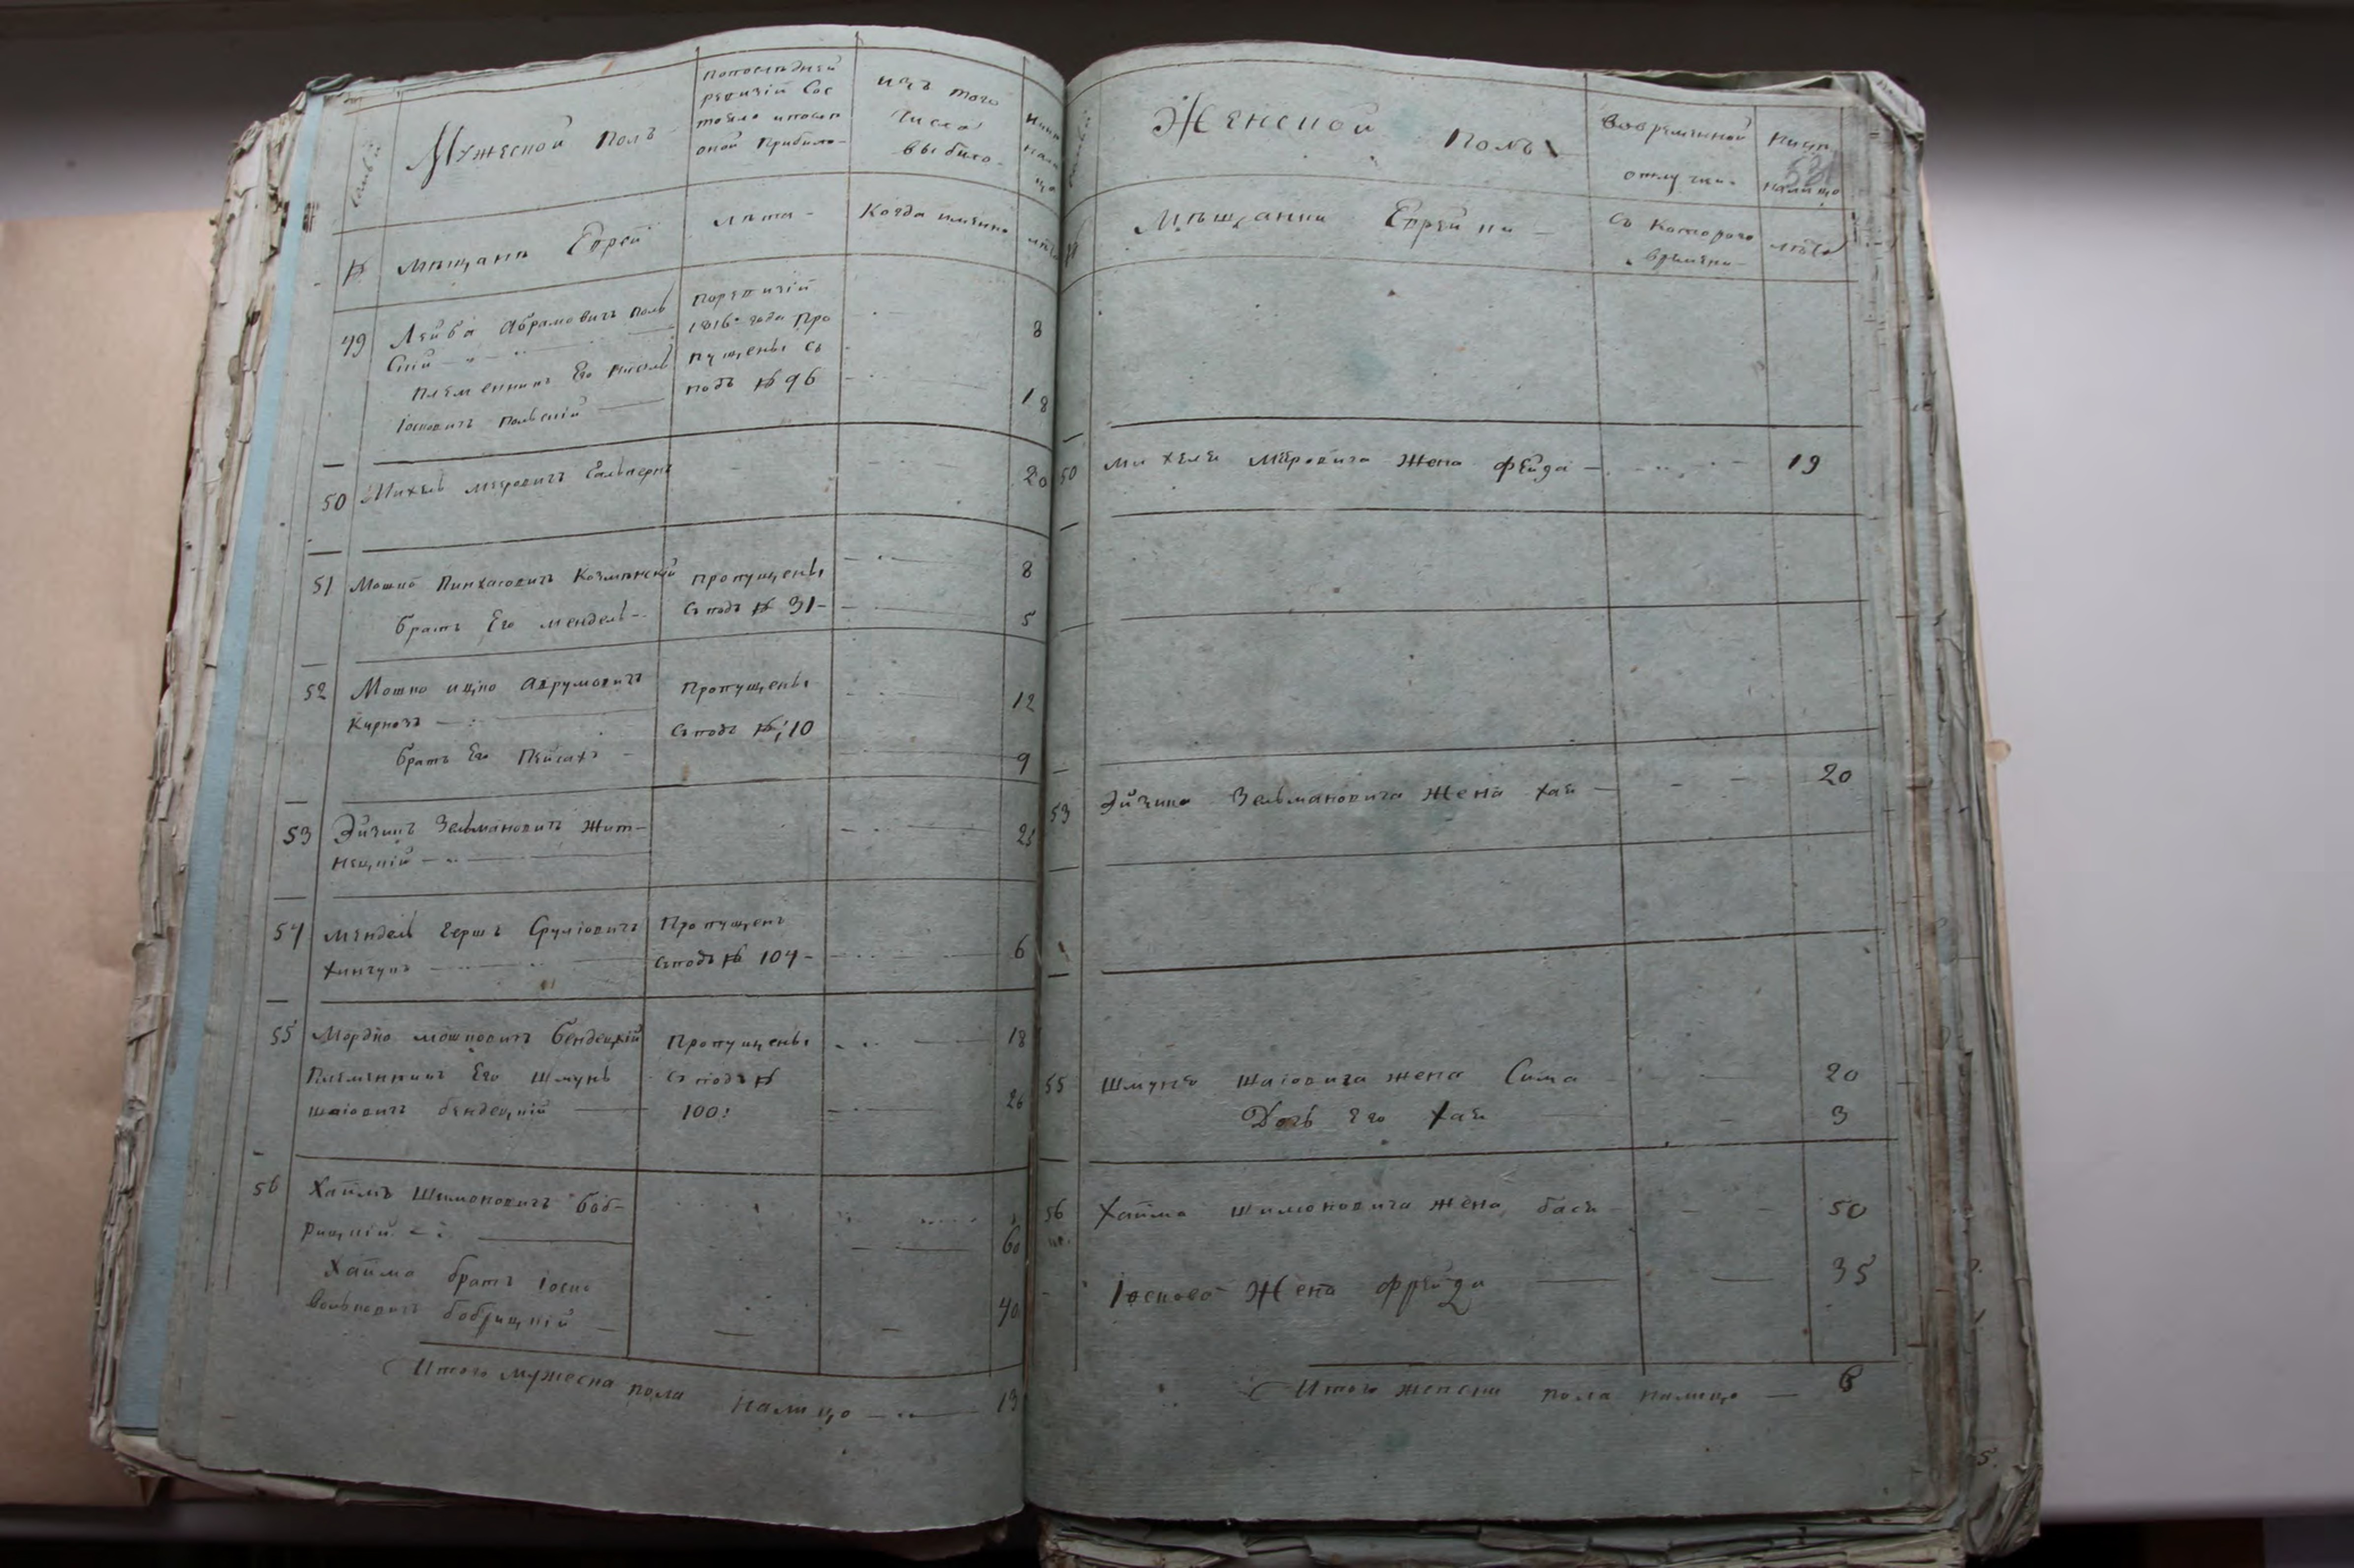 Мужеской полъ
попослѣдней
ревизій сос
тояло ипосл
оной прибыло
изъ того
числа
выбыло
№ мѣщанъ Еврей
лѣта
Когда имянно
49 Лейба Абрамовичъ поль
скій
племенникъ Его
Іосковичъ польскій
поревизій
1816 года про
пущены съ
подъ № 96
8
18
50 Михель меировичъ Гальперн
20
51 Мошко Пинхасовичъ Козминскій
братъ Его мендель
пропущены
съ подъ № 31
8
5
52 Мошко ицко Аврумовичъ
братъ Его Пейсахъ
Пропущены
съ подъ № 110
12
9
53 Эйзикъ Зельмановичъ Жит-
нецкій
25
54 мендель Гершъ Сруліовичъ
Пропущенъ
съ подъ № 104
6
55 Мордко мошковичъ бендецкій
Племенникъ Его Шмункъ
шаіовичъ бендецкій
Пропущены
съ подъ №
100
18
26
56 Хаимъ Шимоновичъ боб-
рицкій
Хаима братъ Іоско
Волковичъ бобрицкій
60
40
Итого мужеска пола налицо 13
Женской полъ
вовременной
отлучки
налицо
Мѣщанки Еврейки
съ котораго
времени
лѣта
50 михеля меировича жена фейга 19
53 Эйзика Зельмановича жена хая 20
55 Шмунка Шаіовича жена Сима 20
Дочь Его хая 3
56 Хаима шимоновича жена бася 50
Іоскова жена фрейда 35
Итого женска пола налицо 6